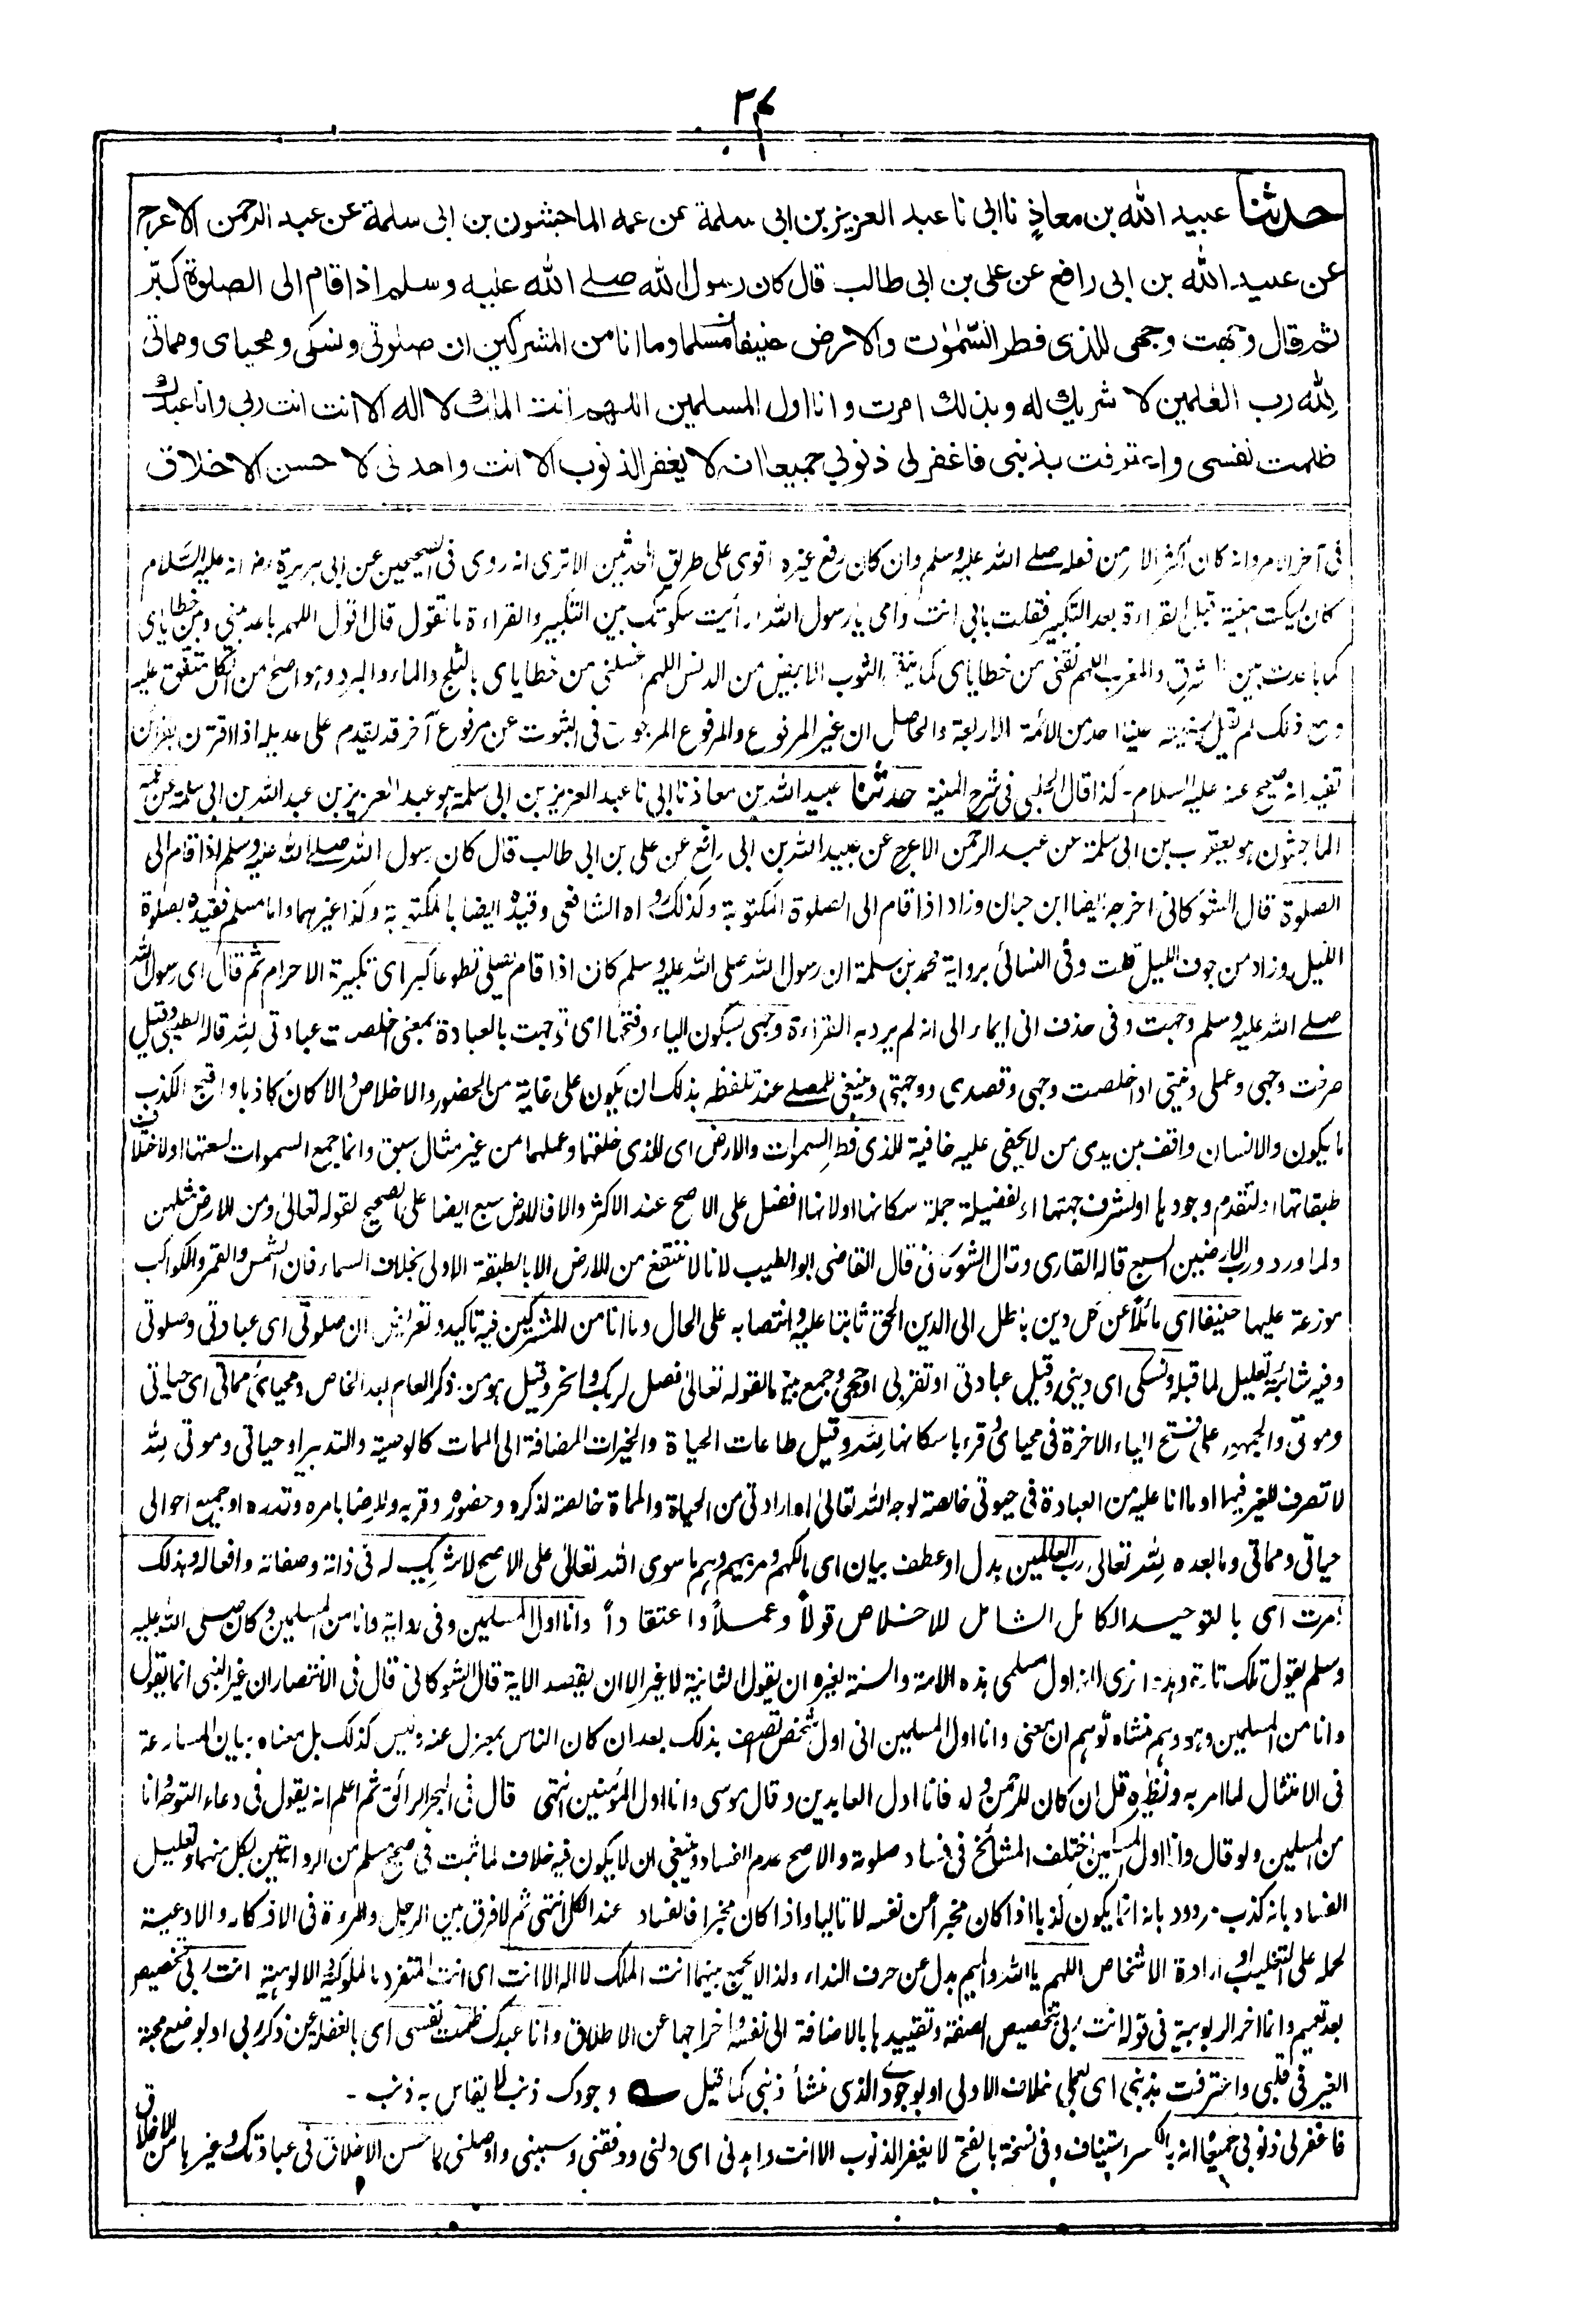 ٣٤
حدثنا عبيد الله بن معاذ نا ابى نا عبد العزيز بن ابى سلمة عن عمه الماجشون بن ابى سلمة عن عبد الرحمن الاعرج
عن عبيد الله بن ابى رافع عن على بن ابى طالب قال كان رسول الله صلے الله عليه وسلم اذا قام الى الصلوة كبّر
ثم قال وجهت وجهى للذى فطر السّمٰوٰت والارض حنيفا مسلما وما انا من المشركين ان صلوتى ونسكى ومحياى ومماتى
لله رب العٰلمين لا شريك له وبذلك امرت وانا اول المسلمين اللهم انت الملك لا اله الا انت انت ربى وانا عبدك
ظلمت نفسى واعترفت بذنبى فاغفر لى ذنوبى جميعا انه لا يغفر الذنوب الا انت واهدنى لا حسن الاخلاق
فى آخر الامر وانه كان اكثر الامر من فعله صلے الله عليه وسلم وان كان رفع غيره اقوى على طريق المحدثين الا ترى انه روى فى الصحيحين عن ابى هريرة رضـ انه عليه السّلام
كان يسكت هنية قبل القراءة بعد التكبير فقلت بابى انت وامى يا رسول الله ارأيت سكوتك بين التكبير والقراءة ما تقول قال اقول اللهم باعد بينى وبين خطاياى
كما باعدت بين المشرق والمغرب اللهم نقنى من خطاياى كما ينقى الثوب الابيض من الدنس اللهم اغسلنى من خطاياى بالثلج والماء والبرد وهو اصح من الكل متفق عليه
ومع ذلك لم يقل بسنيته عينا احد من الائمة الاربعة والحاصل ان غير المرفوع والمرفوع المرجوح فى الثبوت عن مرفوع آخر قد يقدم على عديله اذا اقترن بقرائن
تفيد انه صحيح عنه عليه السلام - كذا قال الحلبى فى شرح المنية حدثنا عبيد الله بن معاذ نا ابى نا عبد العزيز بن ابى سلمة هو عبد العزيز بن عبد الله بن ابى سلمة عن عمه
الماجشون هو يعقوب بن ابى سلمة عن عبد الرحمن الاعرج عن عبيد الله بن ابى رافع عن على بن ابى طالب قال كان رسول الله صلے الله عليه وسلم اذا قام الى
الصلوة قال الشوكانى اخرجه ايضا ابن حبان وزاد اذا قام الى الصلوة المكتوبة وكذلك رواه الشافعى وقيده ايضا بالمكتوبة وكذا غيرهما واما مسلم فقيده بصلوة
الليل وزاد من جوف الليل قلت وفى النسائى برواية محمد بن سلمة ان رسول الله صلى الله عليه وسلم كان اذا قام يصلى تطوعا كبر اى تكبيرة الاحرام ثم قال اى رسول الله
صلے الله عليه وسلم وجهت وفى حذف انى ايماء الى انه لم يرد به القراءة وجهى بسكون الياء وفتحها اى توجهت بالعبادة بمعنى اخلصت عبادتى لله قاله الطيبى وقيل
صرفت وجهى وعملى ونيتى او اخلصت وجهى وقصدى ووجهتى وينبغى للمصلے عند تلفظه بذلك ان يكون على غاية من الحضور والاخلاص والا كان كاذبا واقبح الكذب
ما يكون والانسان واقف بين يدى من لا يخفى عليه خافية للذى فطر السموات والارض اى للذى خلقهما وعملهما من غير مثال سبق وانما جمع السموات لسعتها او لاختلاف
طبقاتها او لتقدم وجودها او لشرف جهتها او لفضيلة جملة سكانها او لانها افضل على الاصح عند الاكثر والا فالارض سبع ايضا على الصحيح لقوله تعالى ومن الارض مثلهن
ولما ورد ورب الارضين السبع قاله القارى وقال الشوكانى قال القاضى ابو الطيب لانا لا ننتفع من الارض الا بالطبقة الاولى بخلاف السماء فان الشمس والقمر والكواكب
موزعة عليها حنيفا اى مائلا عن كل دين باطل الى الدين الحق ثابتا عليه وانتصابه على الحال وما انا من المشركين فيه تاكيد وتعريض ان صلوتى اى عبادتى وصلوتى
وفيه شائبة تعليل لما قبله ونسكى اى دينى وقيل عبادتى او تقربى او حجى وجمع بينهما لقوله تعالى فصل لربك وانحر وقيل هو من ذكر العام بعد الخاص ومحياى ومماتى اى حياتى
وموتى والجمهور على فتح الياء الاخرة فى محياى وقرء باسكانها لله وقيل طاعات الحياة والخيرات المضافة الى الممات كالوصية والتدبير او حياتى وموتى لله
لا تصرف للغير فيهما او ما انا عليه من العبادة فى حيوتى خالصة لوجه الله تعالى او ارادتى من الحياة والممات خالصة لذكره وحضوره وقربه وللرضا بامره وقدره او جميع احوالى
حياتى ومماتى وما بعده لله تعالى رب العالمين بدل او عطف بيان اى مالكهم ومربيهم وهم ما سوى الله تعالى على الاصح لا شريك له فى ذاته وصفاته وافعاله وبذلك
امرت اى بالتوحيد الكامل الشامل للاخلاص قولاً وعملاً واعتقاداً وانا اول المسلمين وفى رواية وانا من المسلمين وكان صلى الله عليه
وسلم يقول تلك تارة وهذه اخرى لانه اول مسلمى هذه الامة والسنة لغيره ان يقول الثانية لا غير الا ان يقصد الاية قال الشوكانى قال فى الانتصار ان غير النبى انما يقول
وانا من المسلمين وهو وهم منشاه توهم ان معنى وانا اول المسلمين انى اول شخص تصف بذلك بعد ان كان الناس بمعزل عنه وليس كذلك بل معناه بيان المسارعة
فى الامتثال لما امر به ونظيره قل ان كان للرحمن ولد فانا اول العابدين وقال موسى وانا اول المؤمنين انتهى قال فى البحر الرائق ثم اعلم انه يقول فى دعاء التوجه وانا
من المسلمين ولو قال وانا اول المسلمين اختلف المشائخ فى فساد صلوته والاصح عدم الفساد وينبغى ان لا يكون فيه خلاف لما ثبت فى صحيح مسلم من الروايتين بكل منهما وتعليل
الفساد بانه كذب مردود بانه انما يكون كذبا اذا كان مخبرا عن نفسه لا تاليا واذا كان مخبرا فالفساد عند الكل انتهى ثم لا فرق بين الرجل والمرءة فى الاذكار والادعية
لحمله على التغليب او ارادة الاشخاص اللهم يا الله والميم بدل عن حرف النداء ولذا لا يجمع بينهما انت الملك لا اله الا انت اى انت المتفرد بالملوكية والالوهية انت ربى تخصيص
بعد تعميم وانما اخر الربوبية فى قوله انت ربى لتخصيص الصفة وتقييدها بالاضافة الى نفسه واخراجها عن الاطلاق وانا عبدك ظلمت نفسى اى بالغفلة عن ذكر ربى او لوضع محبة
الغير فى قلبى واعترفت بذنبى اى بعملى خلاف الاولى او بوجودى الذى منشأ ذنبى كما قيل ؎ وجودك ذنب لا يقاس به ذنب -
فاغفر لى ذنوبى جميعا انه بالكسر استيناف وفى نسخة بالفتح لا يغفر الذنوب الا انت واهدنى اى دلنى ووفقنى وسببنى واوصلنى لاحسن الاخلاق فى عبادتك وغيرها من الاخلاق